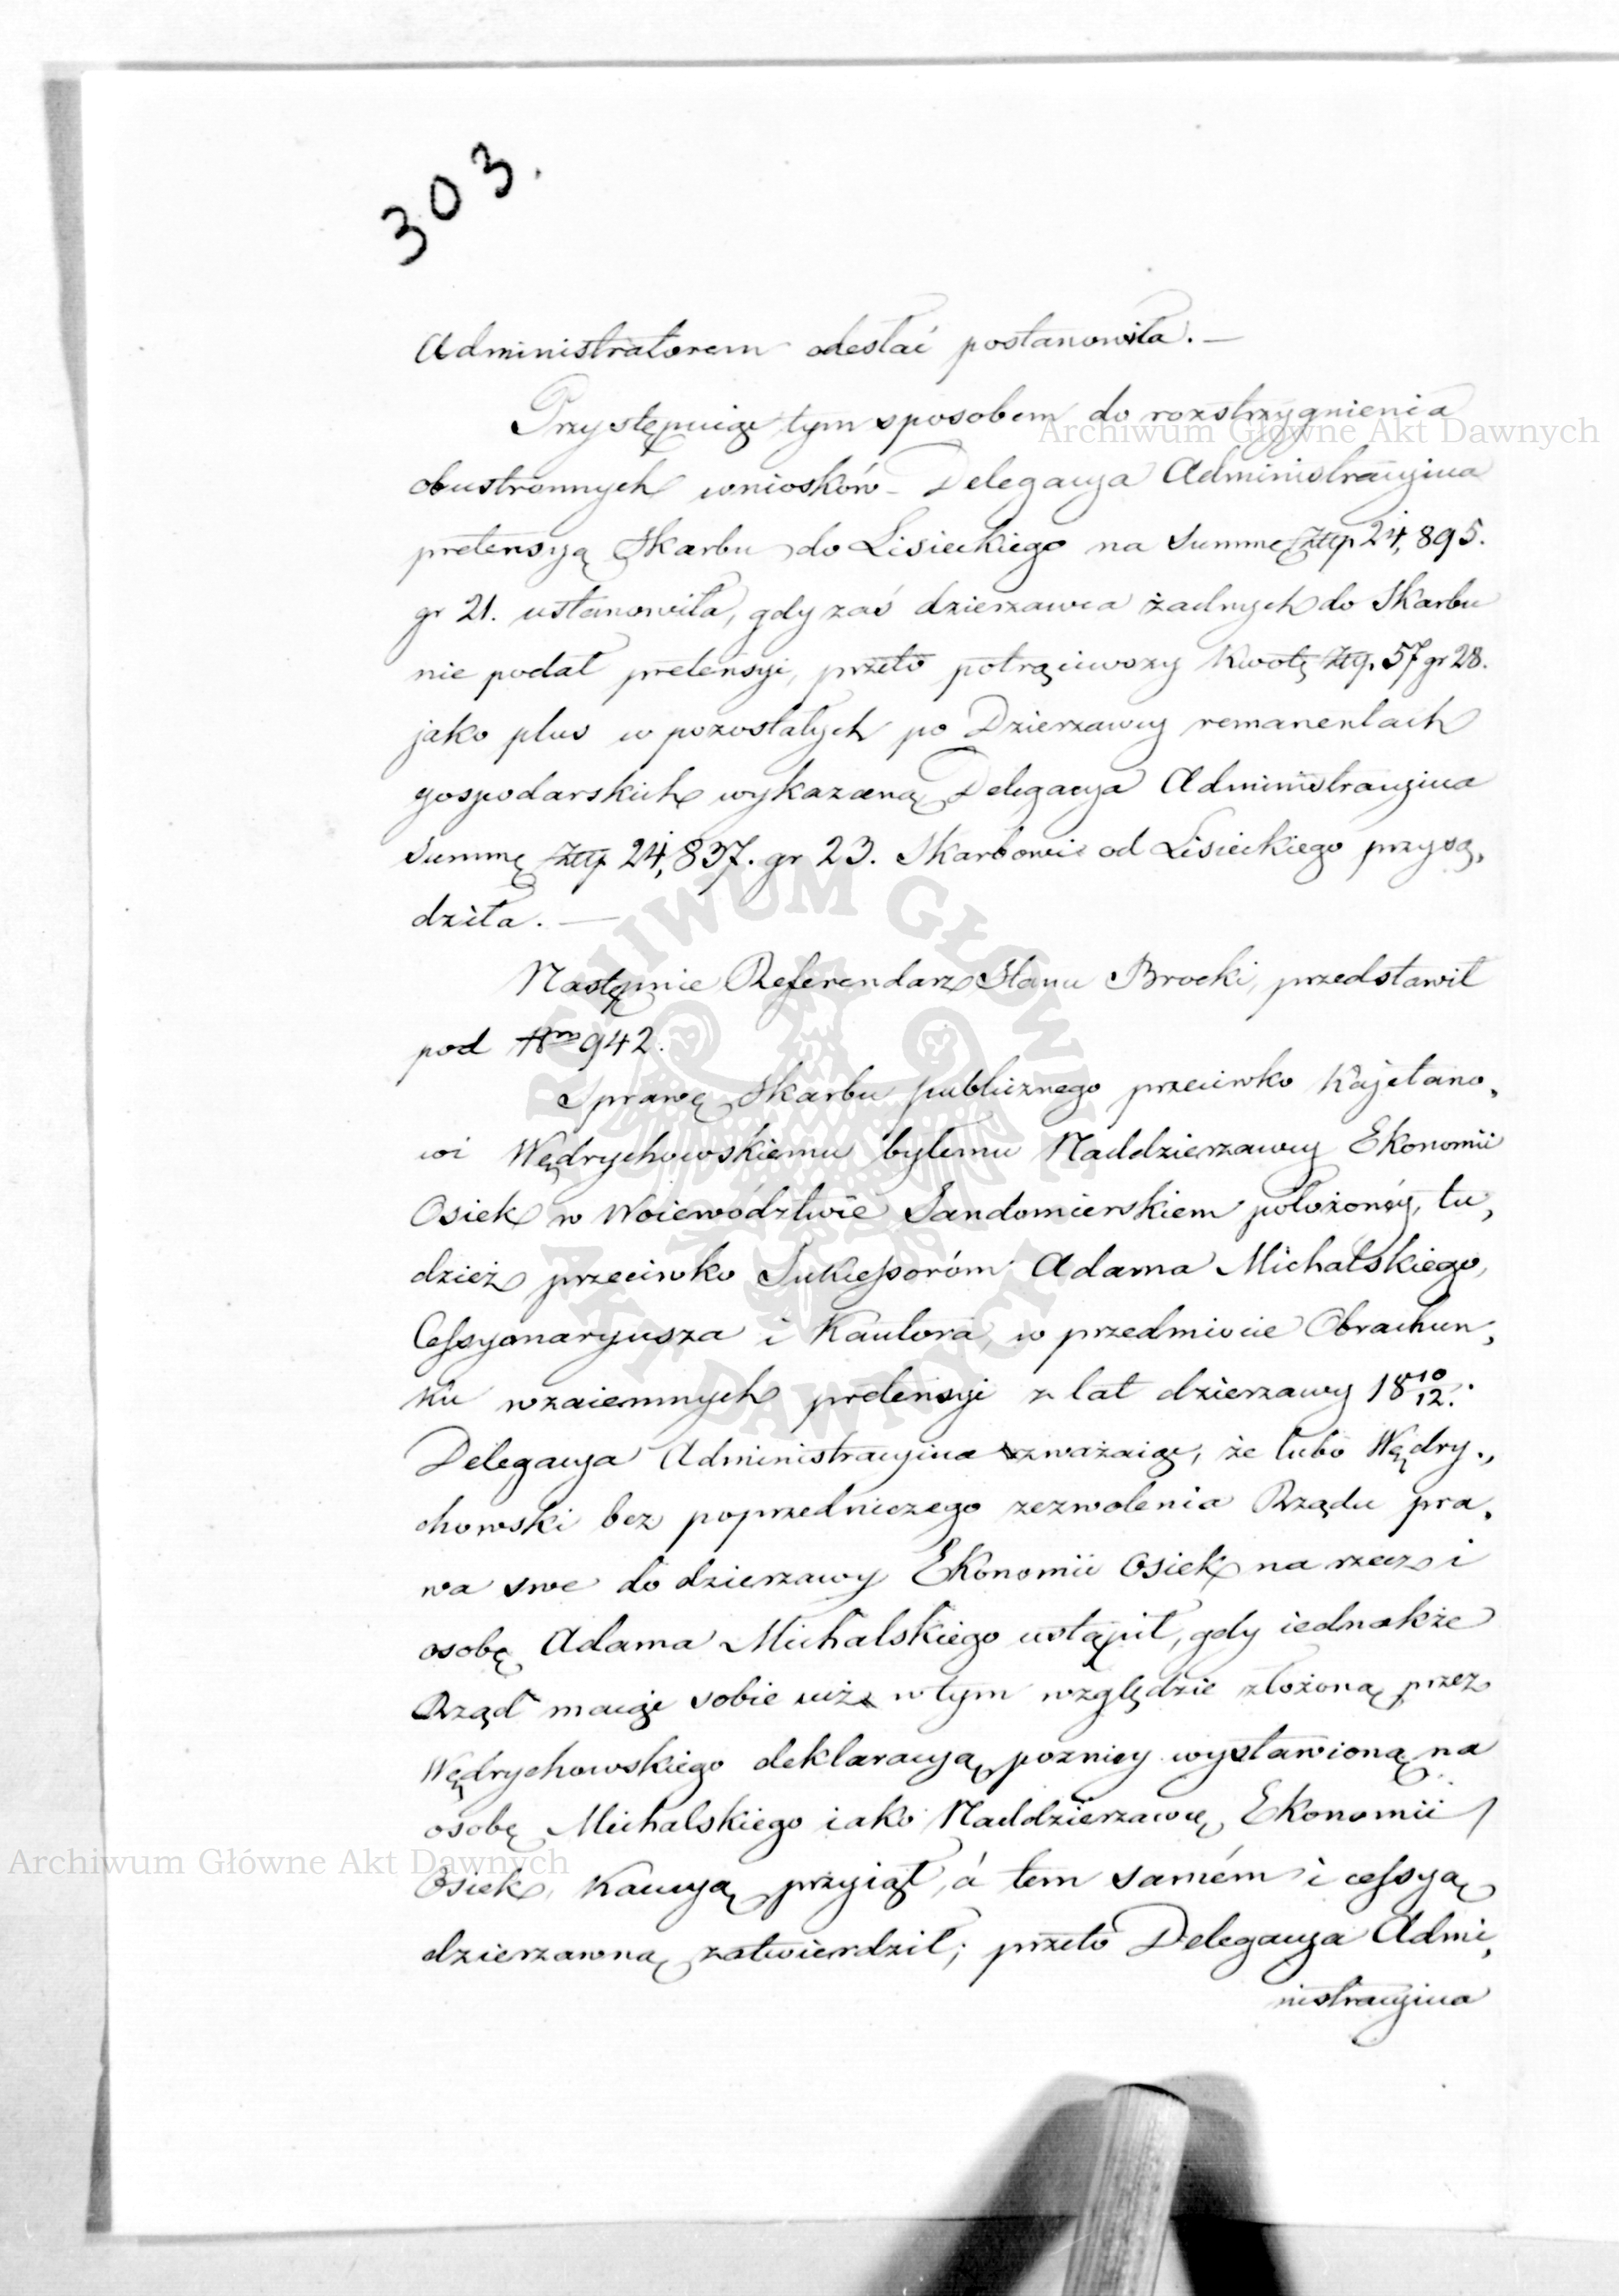 303.
Administratorem odesłać postanowiła. —
Przystępuiąc tym sposobem do rozstrzygnienia
obustronnych wniosków Delegacya Administracyina
pretensyą Skarbu do Lisieckiego na Summę Złtp 24,895.
gr 21. ustanowiła, gdy zaś dzierzawca żadnych do Skarbu
nie podał pretensyi, przeto potrąciwszy Kwotę Złtp. 57 gr 28.
jako plus w pozostałych po Dzierzawcy remanentach
gospodarskich wykazaną Delegacya Administracyina
Summę Złtp 24,837. gr 23. Skarbowi od Lisieckiego przysą,
dziła. —
Następnie Referendarz Stanu Brocki, przedstawił
pod Nrm 942.
Sprawę Skarbu publicznego przeciwko Kajetano,
wi Wędrychowskiemu byłemu Naddzierzawcy Ekonomii
Osiek w Woiewództwie Sandomierskiem położonéy, tu,
dzież przeciwko Sukcessoróm Adama Michalskiego,
Cessyonaryusza i Kautora, w przedmiocie Obrachun,
ku wzaiemnych pretensyi z lat dzierzawy 18 10/12.
Delegacya Administracyina zważaiąc, że lubo Wędry,
chowski bez poprzedniczego zezwolenia Rządu pra,
wa swe do dzierzawy Ekonomii Osiek na rzecz i
osobę Adama Michalskiego ustąpił, gdy iednakże
Rząd maiąc sobie iuż w tym względzie złożoną przez
Wędrychowskiego deklaracyą, pozniey wystawioną na
osobę Michalskiego iako Naddzierzawcę Ekonomii
Osiek, Kaucyą przyiął, á tem samém i cessyą
dzierzawną zatwierdził; przeto Delegacya Admi,
nistracyina
Archiwum Główne Akt Dawnych
Archiwum Główne Akt Dawnych
ARCHIWUM GŁÓWNE
AKT DAWNYCH